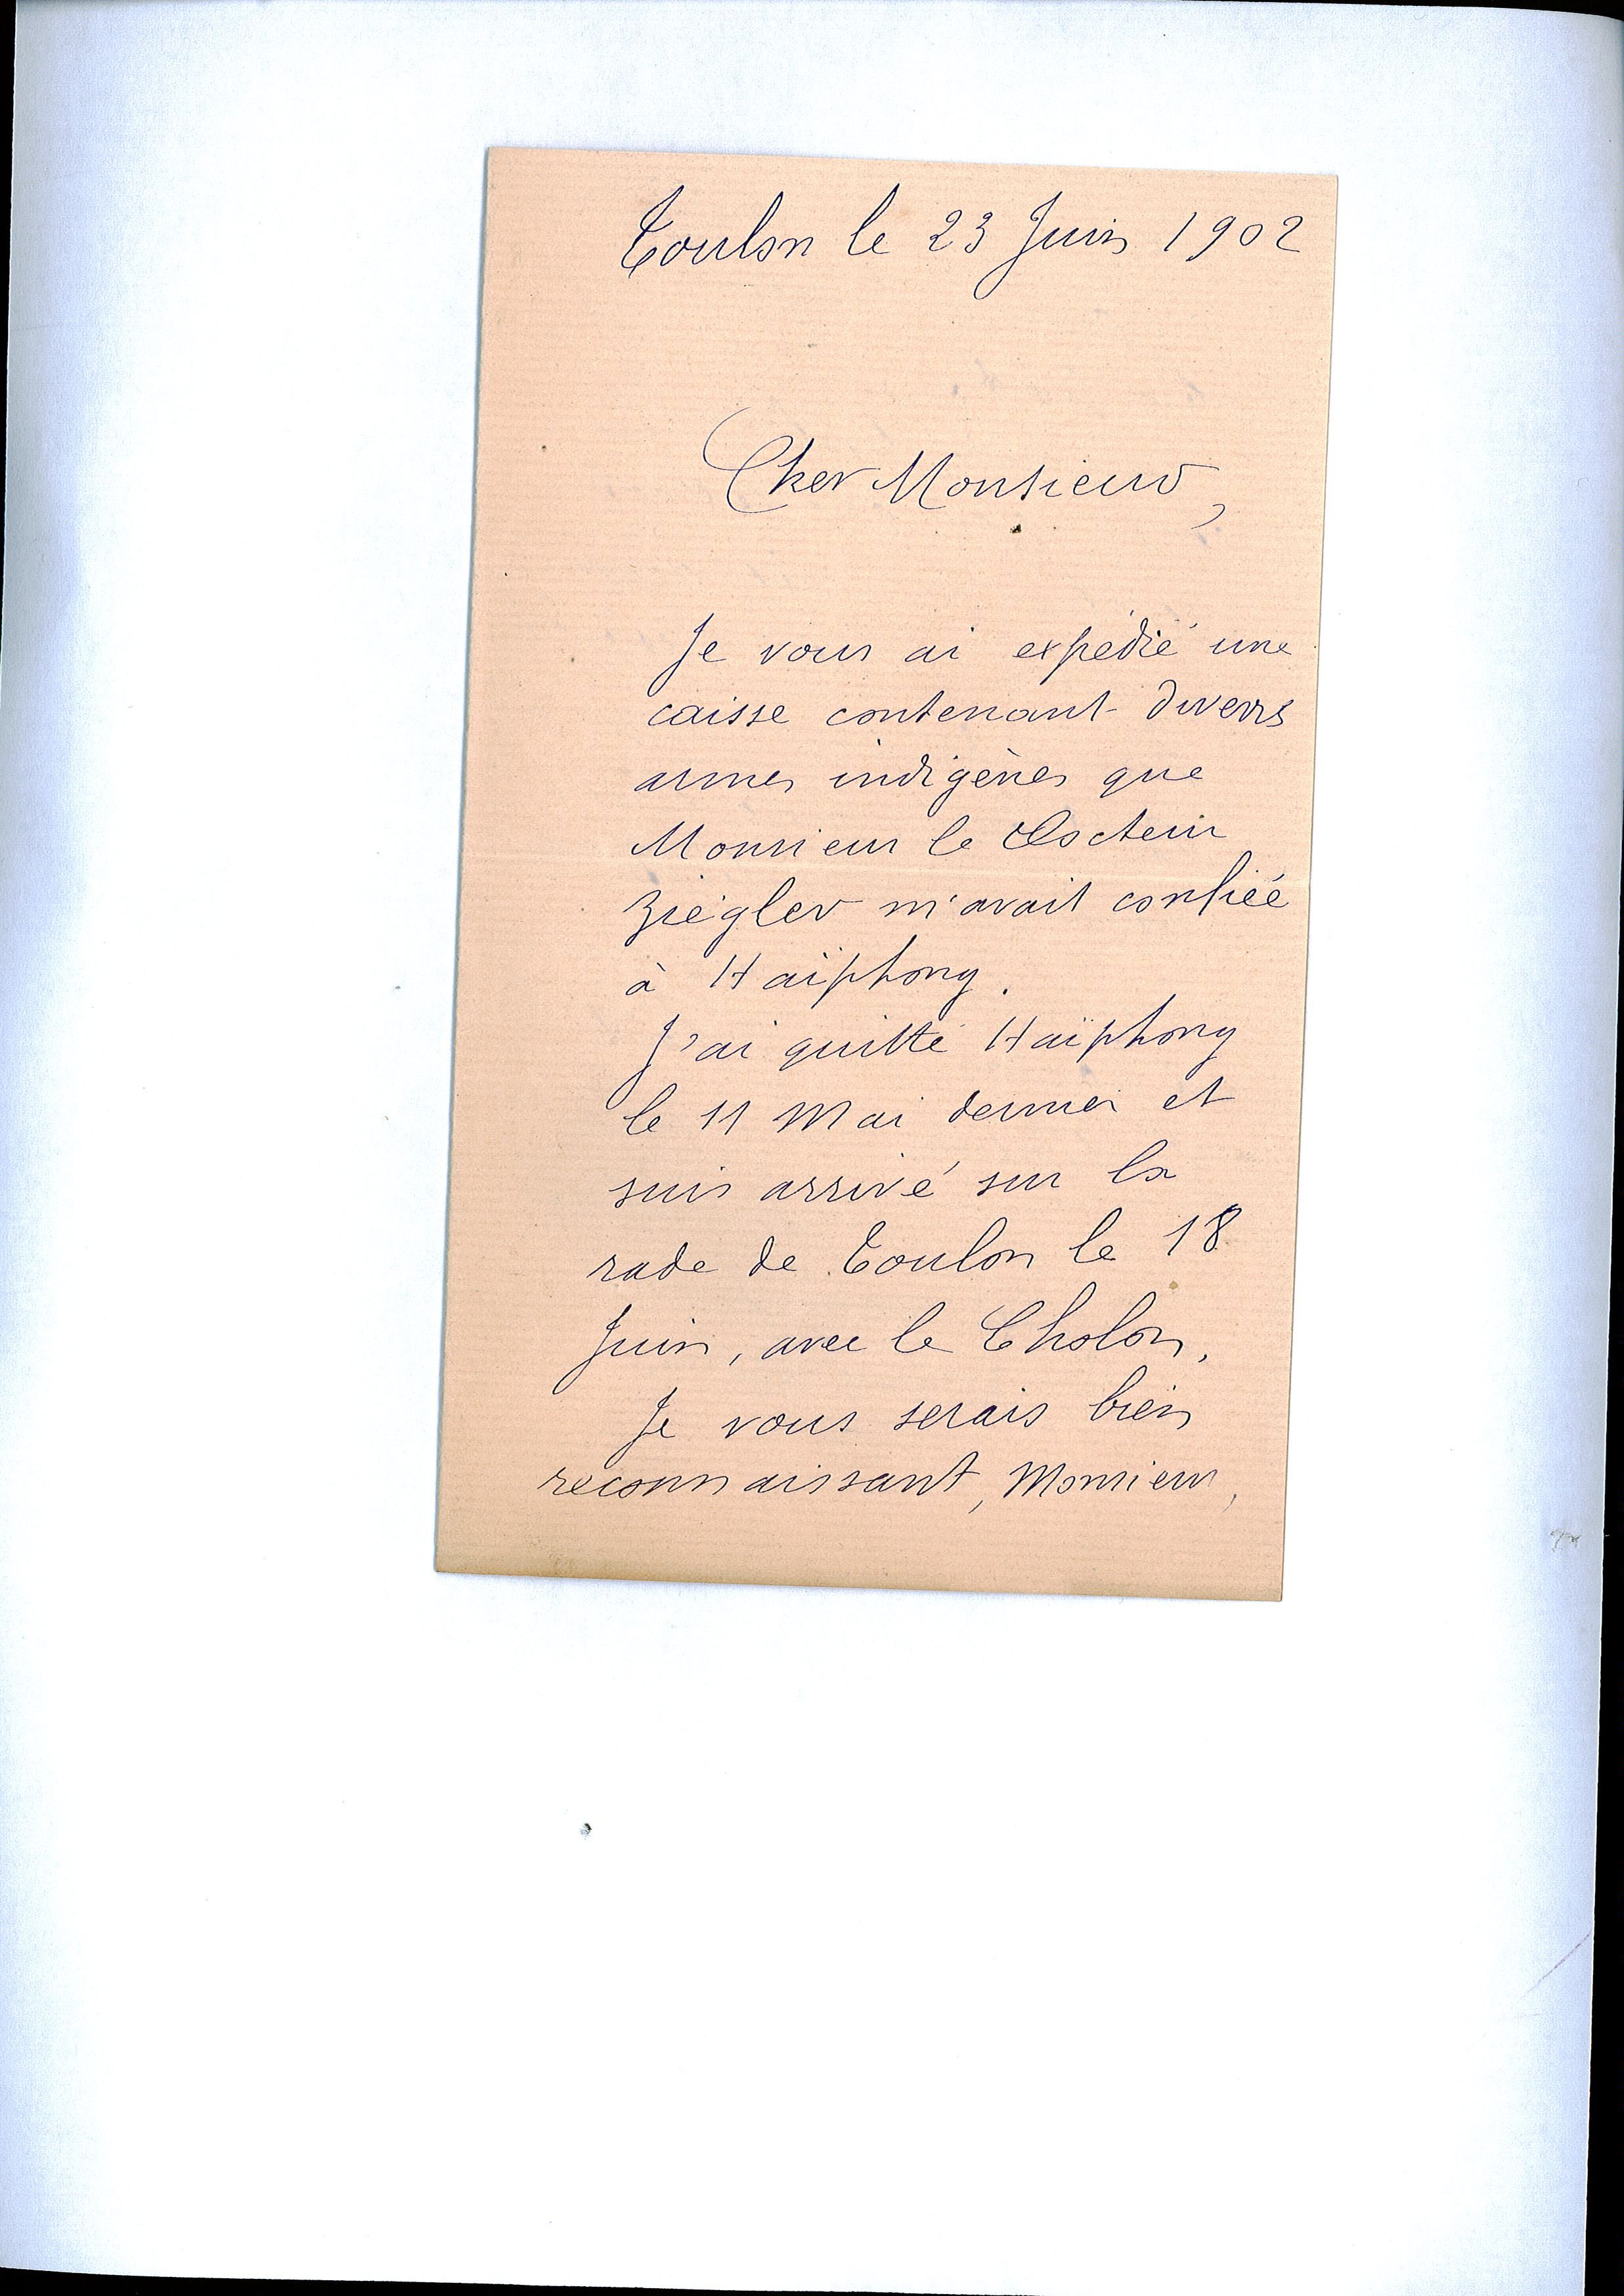 Toulon le 23 Juin 1902
Cher Monsieur,
Je vous ai expédié une
caisse contenant divers
armes indigènes que
Monsieur le Docteur
Ziégler m'avait confiée
à Haïphong.
J'ai quitté Haïphong
le 11 Mai dernier et
suis arrivé sur la
rade de Toulon le 18
Juin, avec le Cholon.
Je vous serais bien
reconnaissant, Monsieur,